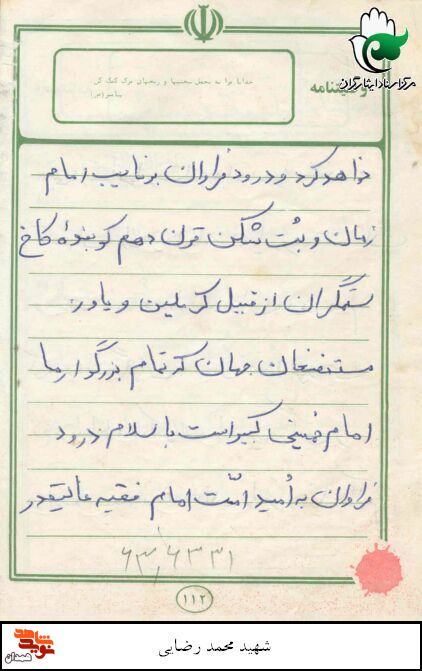 مرکز اسناد ایثارگران
وصیتنامه
خدایا مرا به تحمل سختیها و رنجهای مرگ کمک کن
پیامبر (ص)
خواهد کرد و درود فراوان بر نایب امام
زمان و بُت شکن قرن دهم کوبندهٔ کاخ
ستمگران از قبیل کرملین و یاور
مستضعفان جهان که تمام بزرگوار ما
امام خمینی کبیر است با سلام درود
فراوان به اُمید امّت امام فقیه عالیقدر
۱۱۲
نوید شاهد
همدان
شهید محمد رضایی